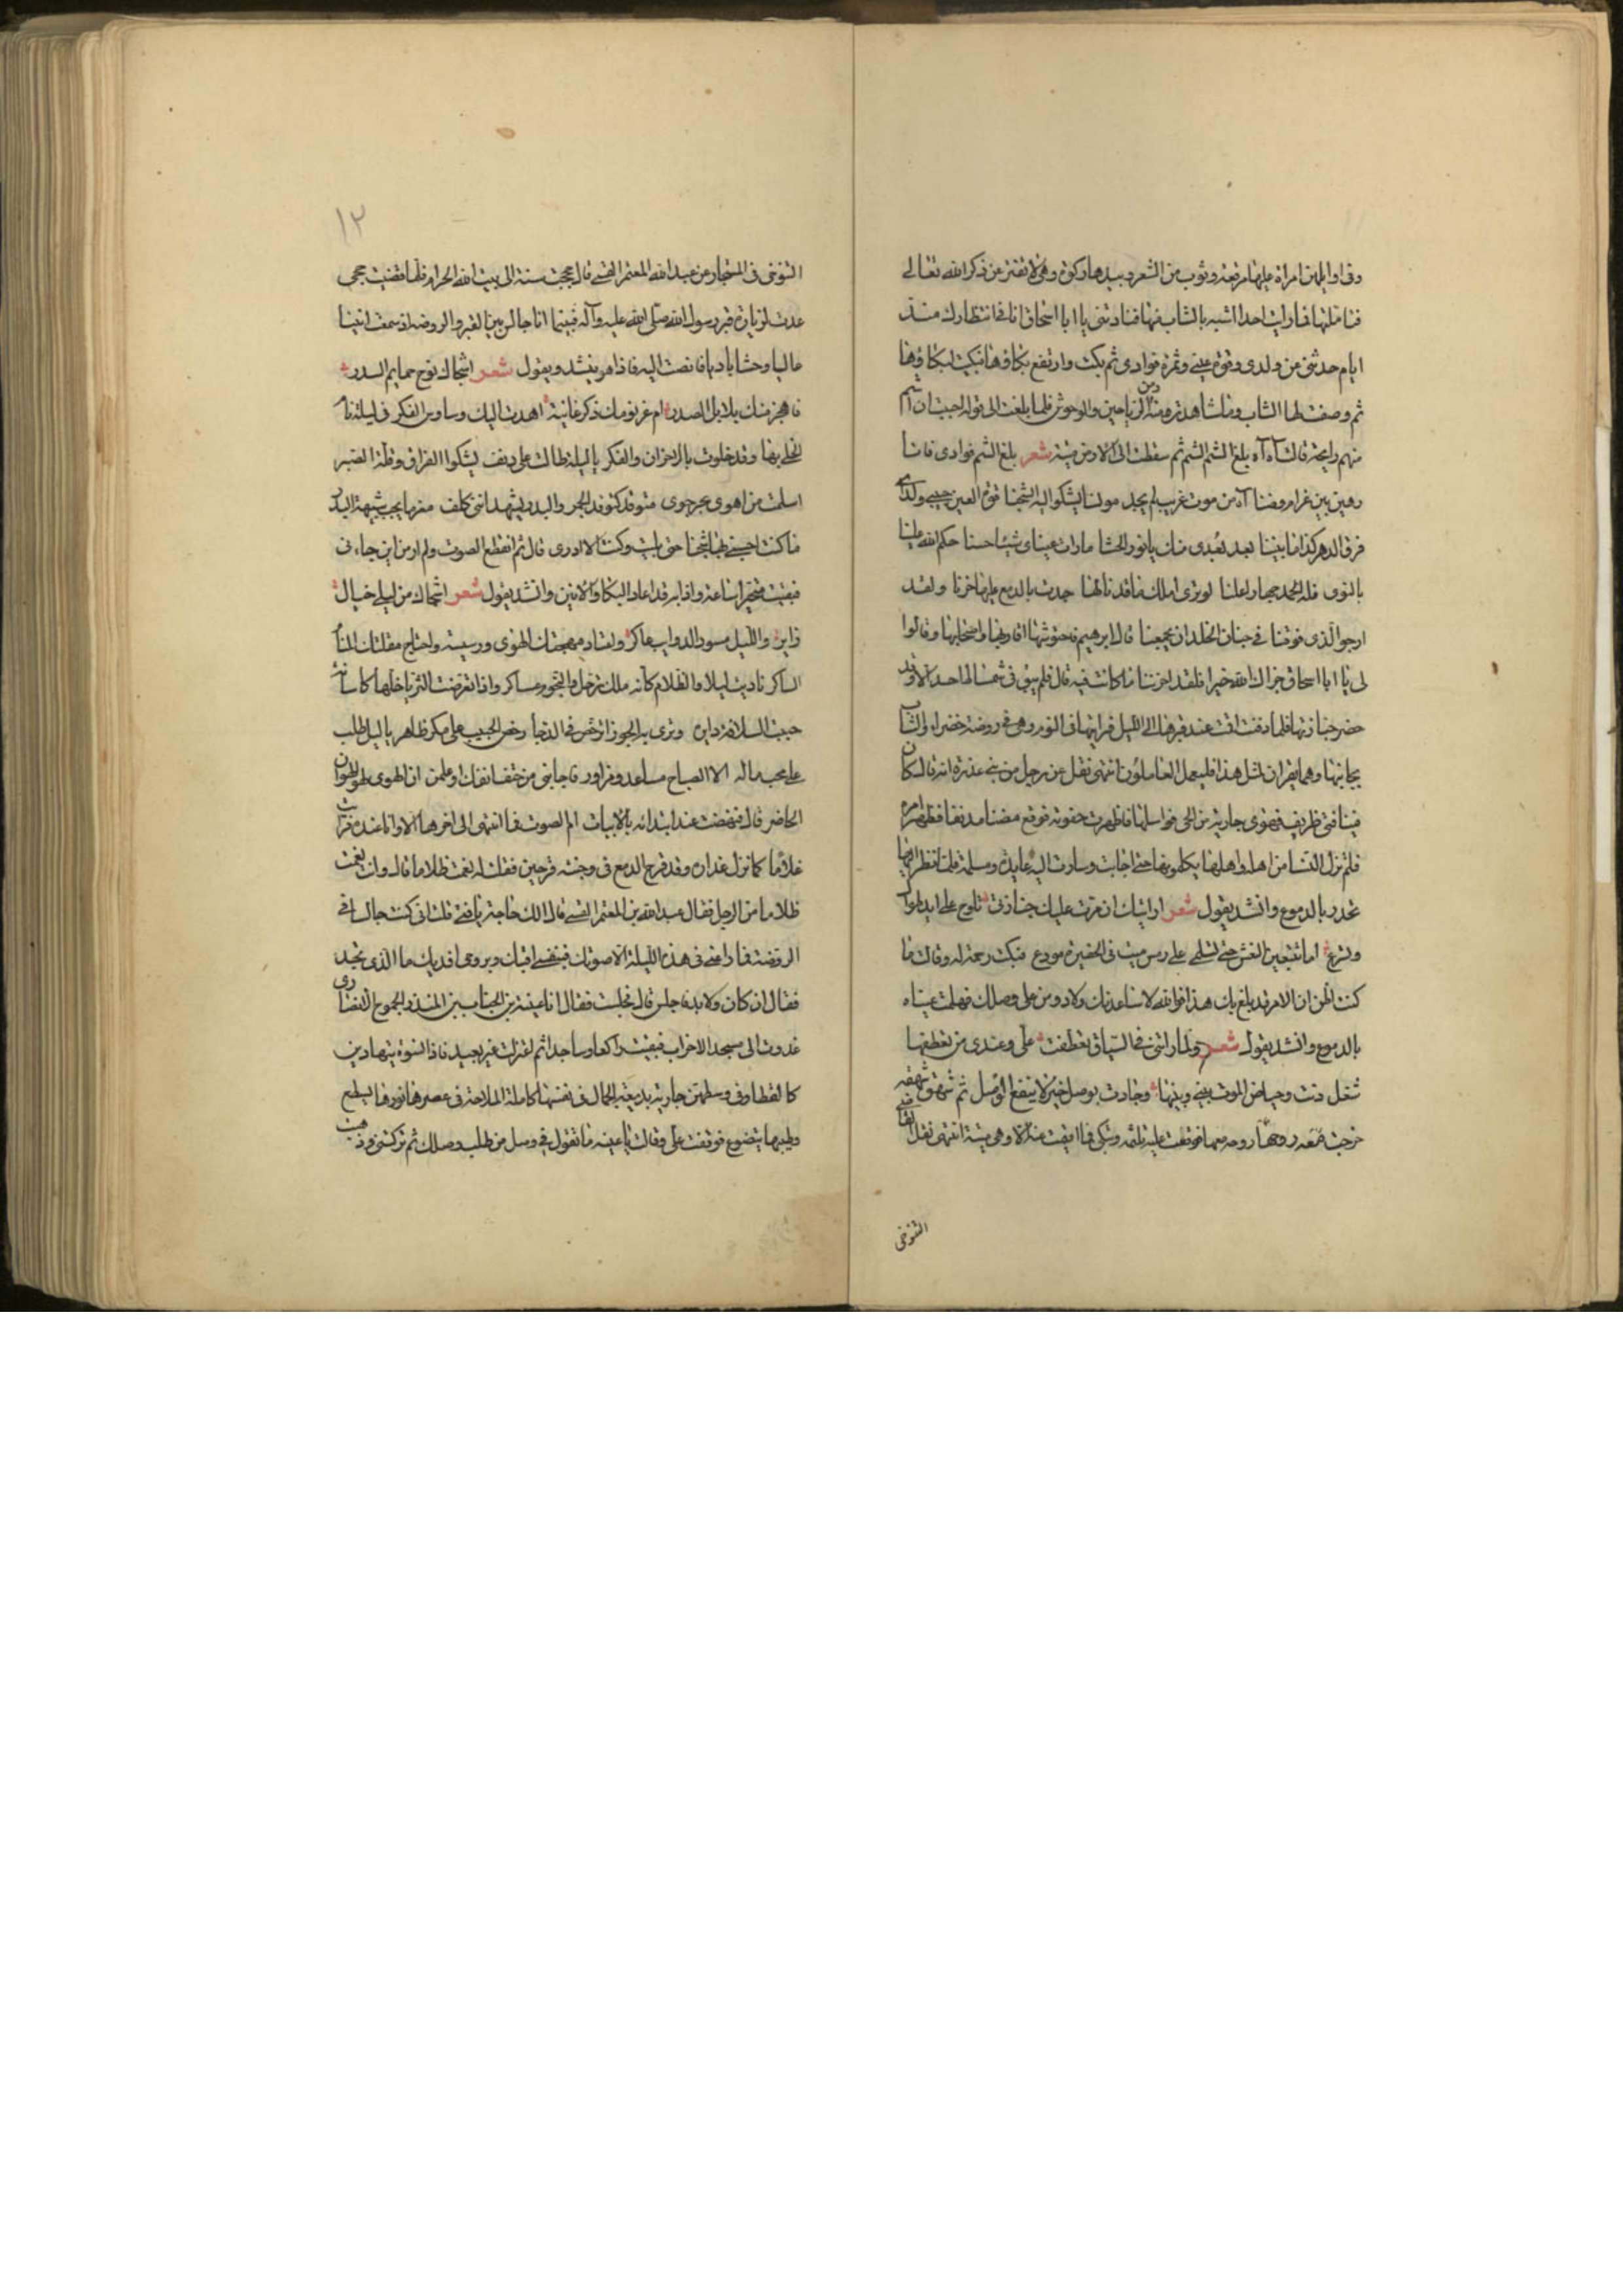 وفي اوايلهن امراة عليها مرقعة وثوب من الشعر وبيدها ركوة وهي لا تفتر عن ذكر الله تعالى
فتاملتها فما رايت احدا اشبه بالشاب منها فنادتني يا ابا اسحاق انا في انتظارك منذ
ايام حدثني عن ولدي وقرة عيني وثمرة فوادي ثم بكت وارتفع بكاوها فبكيت لبكاوها
ثم وصفت لها الشاب وما شاهدته منه ومن الرياحين والوحوش فلما بلغت الى قوله احببت ان اشم
منهم رايحة قالت آه آه بلغ الشم الشم ثم سقطت الى الارض ميتة شعر بلغ الشم فوادي فانا
رهين بين غرام وضنا آه من موت غريب لم يجد مونسا يشكوا اليه الشجنا قرة العين حبيبي ولدي
فرق الدهر كذا ما بيننا بعد بعدي منك يا نور الحشا ما رات عيناي شيئا حسنا حكم الله علينا
بالنوى فله الحمد جهارا علنا لو ترى املك ما قد نالها جدت بالدمع عليها حزنا ولقد
ارجوا الذي فرقنا في جنان الخلد ان يجمعنا قال ابراهيم فاحتوشتها اقاربها واصحابها وقالوا
لي يا ابا اسحاق جزاك الله خيرا فلقد احزننا ما كانت فيه قال فلم يبق في شمنا لها احد الا وقد
حضر جنازتها فلما دفنت اقمت عند قبرها الى الليل فرايتها في النوم وهي في روضة خضراء والشاب
بجانبها وهما يقران لمثل هذا فليعمل العاملون انتهى نقل عن رجل من بني عذرة انه قال كان
فينا فتى ظريف فهوى جارية من الحي فراسلها فاظهرت جفوته فوقع مضنا مدنفا فظهر امره
فلم تزل النسا من اهله واهلها يكلمونها حتى اجابت وسارت اليه عايدة ومسلمة فلما نظر اليها
تحدر بالدموع وانشد يقول شعر اريتك ان مرت عليك جنازتي تلوح على ايد طوال
وتسرع اما تتبعين النعش حتى تسلمي على رمس ميت في الحفيرة مودع فبكت رحمة له وقالت ما
كنت اظن ان الامر قد بلغ بك هذا فوالله لاساعدنك ولاداومن على وصلك فهملت عيناه
بالدموع وانشد يقول شعر ولما راتني في السياق تعطفت علي وعندي من تعطفها
شغل دنت وحياض الموت بيني وبينها وجادت بوصل حين لا ينفع الوصل ثم شهق شهقة
خرجت روحه معها فوقعت عليه تلثمه وتبكي فما افيقت عنه الا وهي ميتة انتهى نقل القاضي
التنوخي
١٢
التنوخي في المستجاد عن عبد الله المعتمر القيسي قال حججت سنة الى بيت الله الحرام فلما قضيت حجي
عدت لزيارة قبر رسول الله صلى الله عليه وآله فبينما انا جالس بين القبر والروضة اذ سمعت انينا
عاليا وحشا باديا فانصت اليه فاذا هو ينشد ويقول شعر اشجاك نوح حمايم السدر
فاهجن منك بلابل الصدر ام عز نومك ذكر غانية اهدت اليك وساوس الفكر في ليلة نام
الخلي بها وقد خلوت بالاحزان والفكر يا ليلة طالت على دنف يشكوا الفراق وقلة الصبر
اسلمت من اهوى بحر جوى متوقد كتوقد الجمر والبدر يشهد انني كلف مغرما بحب شبيهة البدر
ما كنت احسبني لها شجنا حتى بليت وكنت لا ادري قال ثم انقطع الصوت ولم ادر من اين جاءني
فبقيت متحيرا ساعة واذا به قد اعاد البكا والانين وانشد يقول شعر اشجاك من ليلى خيال
زاير والليل مسود الذوايب عاكر واقتاد مهجتك الهوى ورسيسه واهتاج مقلتك المنام
الساكر ناديت ليلا والظلام كانه ملك ترجل والنجوم عساكر واذا تعرضت الثريا خلتها كاسا به
حبب السلافة داير وترى به الجوزا ترقص في الدجا رقص الحبيب على مكر ظاهر يا ليل طلت
على محب ما له الا الصباح مساعد ومزاور فاجابني مت حتف انفك واعلمن ان الهوى لهو الهوان
الحاضر قال فنهضت عند ابتدائه بالابيات ام الصوت فما انتهى الى اخرها الا وانا عنده فرايت
غلاما كما نزل عذاره وقد قرح الدمع في وجنته قرحين فقلت له نعمت ظلاما قال وانت نعمت
ظلاما من الرجل فقال عبد الله بن المعتمر القيسي قال الك حاجة يا فتى قلت اني كنت جالسا في
الروضة فما راعني في هذه الليلة الا صوتك فبنفسي اقيك وبروحي افديك ما الذي تجد
فقال ان كان ولا بد فاجلس قال فجلست فقال انا عتبة بن الحباب بن المنذر الجموح الانصاري
غدوت الى مسجد الاحزاب فبقيت راكعا وساجدا ثم اعتزلت غير بعيد فاذا نسوة يتهادين
كالقطا وفي وسطهن جارية بديعة الجمال في نفسها كاملة الملاحة في عصرها نورها يسطع
وطيبها يتضوع فوقفت علي وقالت يا عتبة ما تقول في وصل من طلب وصلك ثم تركتني وذهبت